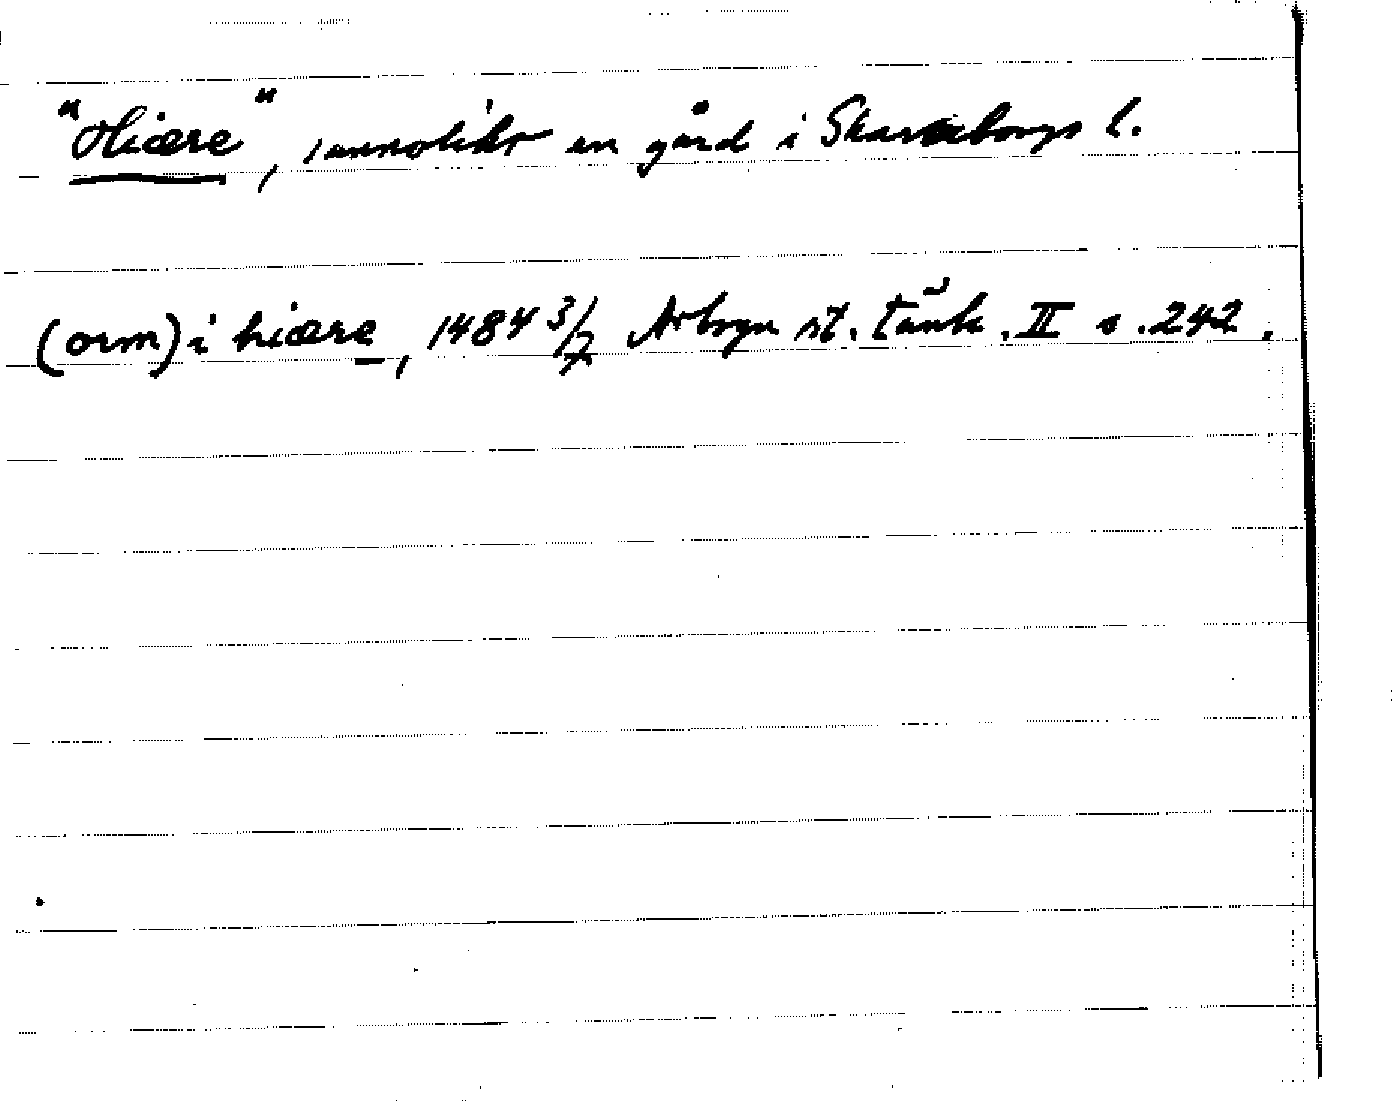 "Hiære", sannolikt en gård i Skaraborgs l.
(orm) i hiære, 1484 3/7 Arboga st. tänk. II s. 242.